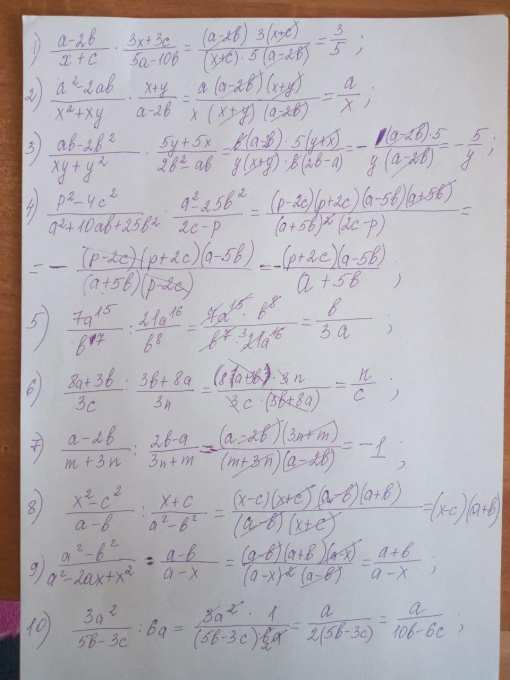 1) (a-2b)/(x+c) · (3x+3c)/(5a-10b) = ((a-2b) 3(x+c))/((x+c)·5(a-2b)) = 3/5 ;
2) (a²-2ab)/(x²+xy) · (x+y)/(a-2b) = (a(a-2b)(x+y))/(x(x+y)(a-2b)) = a/x ;
3) (ab-2b²)/(xy+y²) · (5y+5x)/(2b²-ab) = (b(a-2b)·5(y+x))/(y(x+y)·b(2b-a)) = - ((a-2b)·5)/(y(a-2b)) = - 5/y ;
4) (p²-4c²)/(a²+10ab+25b²) · (a²-25b²)/(2c-p) = ((p-2c)(p+2c)(a-5b)(a+5b))/((a+5b)²(2c-p)) =
= - ((p-2c)(p+2c)(a-5b))/((a+5b)(p-2c)) = - ((p+2c)(a-5b))/(a+5b) ;
5) 7a¹⁵/b¹⁷ : 21a¹⁶/b⁸ = (7a¹⁵·b⁸)/(b⁷·3 21a¹⁶) = b/3a ;
6) (8a+3b)/3c : (3b+8a)/3n = ((8a+3b)·3n)/(3c·(3b+8a)) = n/c ;
7) (a-2b)/(m+3n) : (2b-a)/(3n+m) = ((a-2b)(3n+m))/((m+3n)(a-2b)) = -1 ;
8) (x²-c²)/(a-b) : (x+c)/(a²-b²) = ((x-c)(x+c)(a-b)(a+b))/((a-b)(x+c)) = (x-c)(a+b)
9) (a²-b²)/(a²-2ax+x²) : (a-b)/(a-x) = ((a-b)(a+b)(a-x))/((a-x)²(a-b)) = (a+b)/(a-x) ;
10) 3a²/(5b-3c) : 6a = (3a²·1)/((5b-3c)·6a 2) = a/(2(5b-3c)) = a/(10b-6c) ;